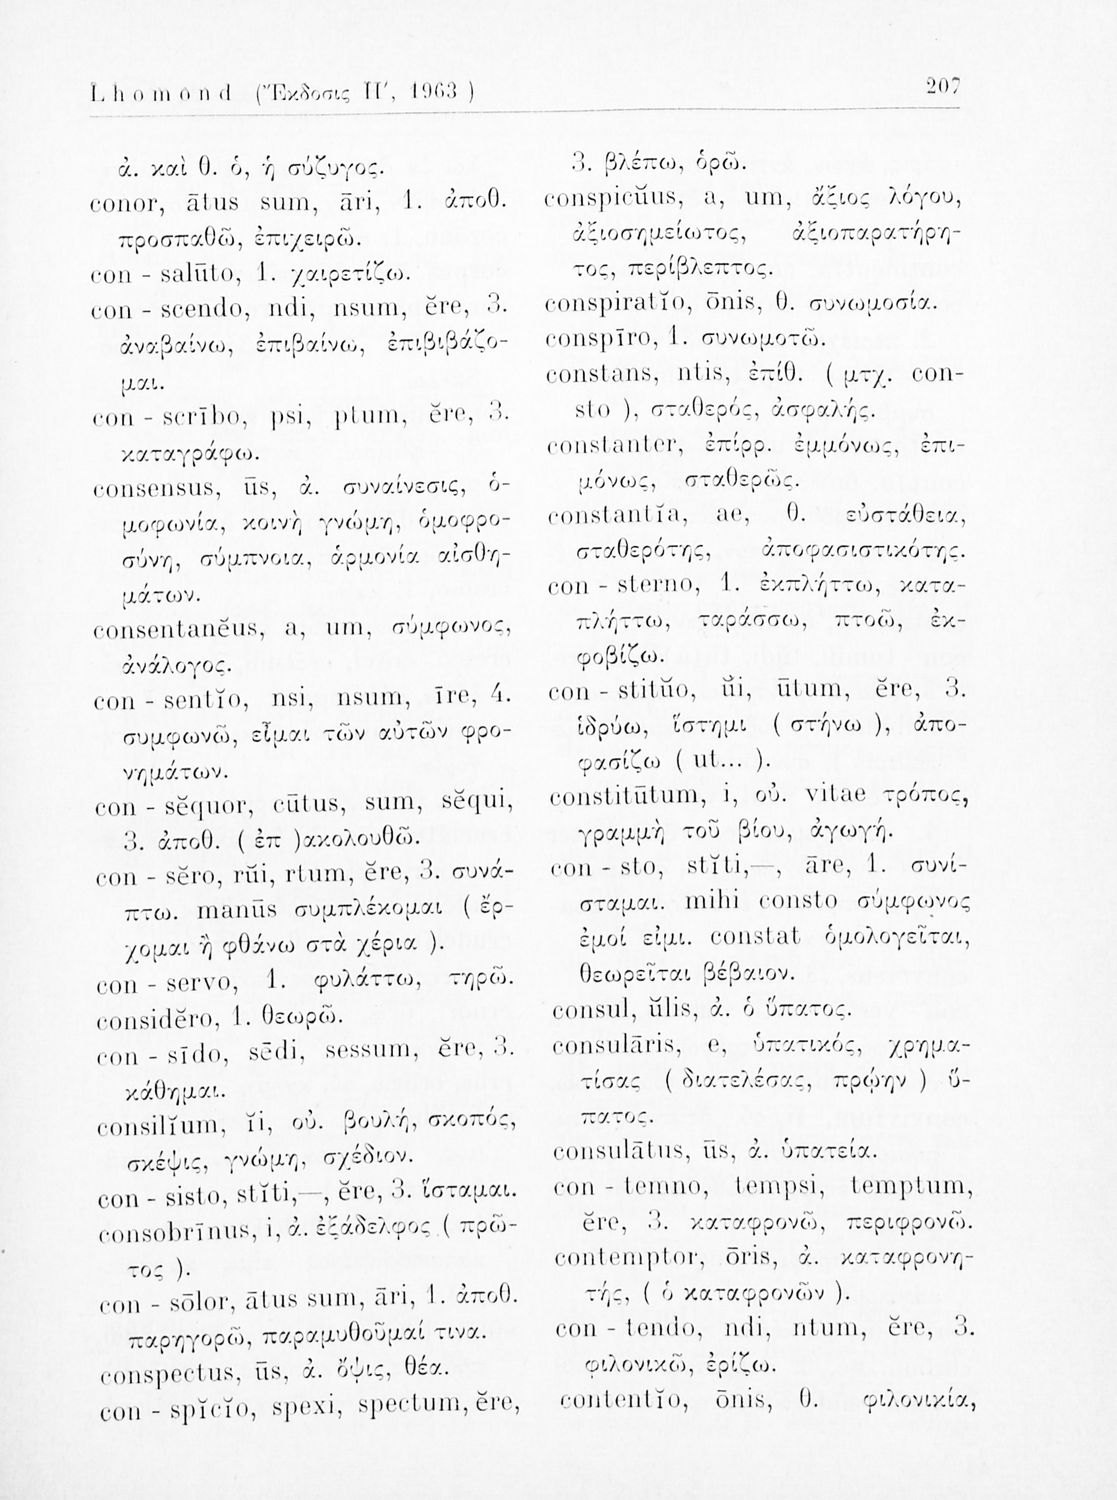 Lhomond (Ἔκδοσις Π′, 1963 )
207
ἀ. καὶ θ. ὁ, ἡ σύζυγος.
conor, ātus sum, āri, 1. ἀποθ.
προσπαθῶ, ἐπιχειρῶ.
con - salūto, 1. χαιρετίζω.
con - scendo, ndi, nsum, ĕre, 3.
ἀναβαίνω, ἐπιβαίνω, ἐπιβιβάζο-
μαι.
con - scrībo, psi, ptum, ĕre, 3.
καταγράφω.
consensus, ūs, ἀ. συναίνεσις, ὁ-
μοφωνία, κοινὴ γνώμη, ὁμοφρο-
σύνη, σύμπνοια, ἁρμονία αἰσθη-
μάτων.
consentanĕus, a, um, σύμφωνος,
ἀνάλογος.
con - sentĭo, nsi, nsum, īre, 4.
συμφωνῶ, εἶμαι τῶν αὐτῶν φρο-
νημάτων.
con - sĕquor, cūtus, sum, sĕqui,
3. ἀποθ. ( ἐπ )ακολουθῶ.
con - sĕro, rŭi, rtum, ĕre, 3. συνά-
πτω. manūs συμπλέκομαι ( ἔρ-
χομαι ἢ φθάνω στὰ χέρια ).
con - servo, 1. φυλάττω, τηρῶ.
considĕro, 1. θεωρῶ.
con - sīdo, sēdi, sessum, ĕre, 3.
κάθημαι.
consilĭum, ĭi, οὐ. βουλή, σκοπός,
σκέψις, γνώμη, σχέδιον.
con - sisto, stĭti,—, ĕre, 3. ἵσταμαι.
consobrīnus, i, ἀ. ἐξάδελφος ( πρῶ-
τος ).
con - sōlor, ātus sum, āri, 1. ἀποθ.
παρηγορῶ, παραμυθοῦμαί τινα.
conspectus, ūs, ἀ. ὄψις, θέα.
con - spĭcĭo, spexi, spectum, ĕre,
3. βλέπω, ὁρῶ.
conspicŭus, a, um, ἄξιος λόγου,
ἀξιοσημείωτος, ἀξιοπαρατήρη-
τος, περίβλεπτος.
conspiratĭo, ōnis, θ. συνωμοσία.
conspīro, 1. συνωμοτῶ.
constans, ntis, ἐπίθ. ( μτχ. con-
sto ), σταθερός, ἀσφαλής.
constanter, ἐπίρρ. ἐμμόνως, ἐπι-
μόνως, σταθερῶς.
constantĭa, ae, θ. εὐστάθεια,
σταθερότης, ἀποφασιστικότης.
con - sterno, 1. ἐκπλήττω, κατα-
πλήττω, ταράσσω, πτοῶ, ἐκ-
φοβίζω.
con - stitŭo, ŭi, ūtum, ĕre, 3.
ἱδρύω, ἵστημι ( στήνω ), ἀπο-
φασίζω ( ut... ).
constitūtum, i, οὐ. vitae τρόπος,
γραμμὴ τοῦ βίου, ἀγωγή.
con - sto, stĭti,—, āre, 1. συνί-
σταμαι. mihi consto σύμφωνος
ἐμοί εἰμι. constat ὁμολογεῖται,
θεωρεῖται βέβαιον.
consul, ŭlis, ἀ. ὁ ὕπατος.
consulāris, e, ὑπατικός, χρημα-
τίσας ( διατελέσας, πρῴην ) ὕ-
πατος.
consulātus, ūs, ἀ. ὑπατεία.
con - temno, tempsi, temptum,
ĕre, 3. καταφρονῶ, περιφρονῶ.
contemptor, ōris, ἀ. καταφρονη-
τής, ( ὁ καταφρονῶν ).
con - tendo, ndi, ntum, ĕre, 3.
φιλονικῶ, ἐρίζω.
contentĭo, ōnis, θ. φιλονικία,